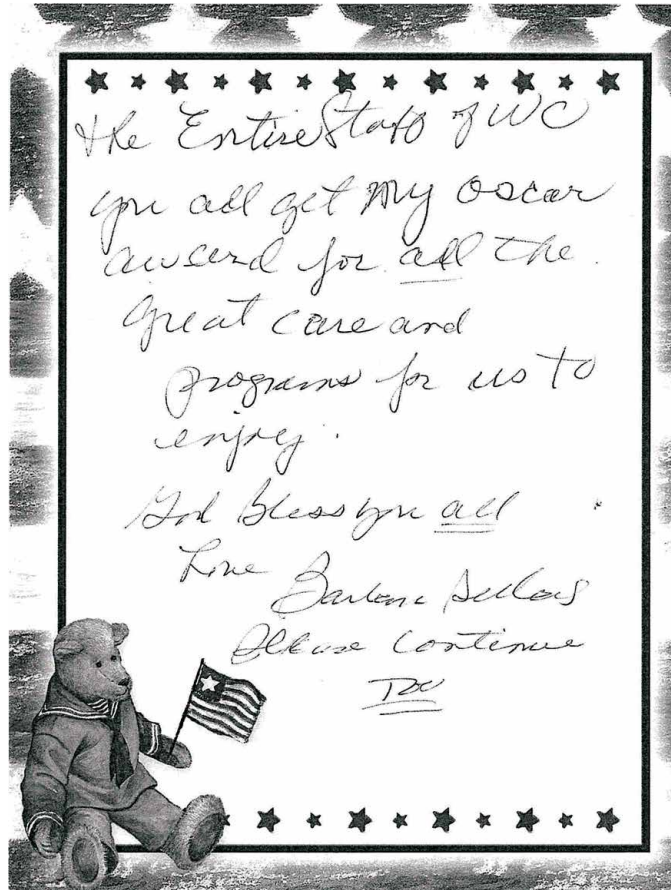 the Entire Staff of WC
you all get My oscar
award for all the
great care and
programs for us to
enjoy.
God Bless you all
Love Barbara
Please Continue